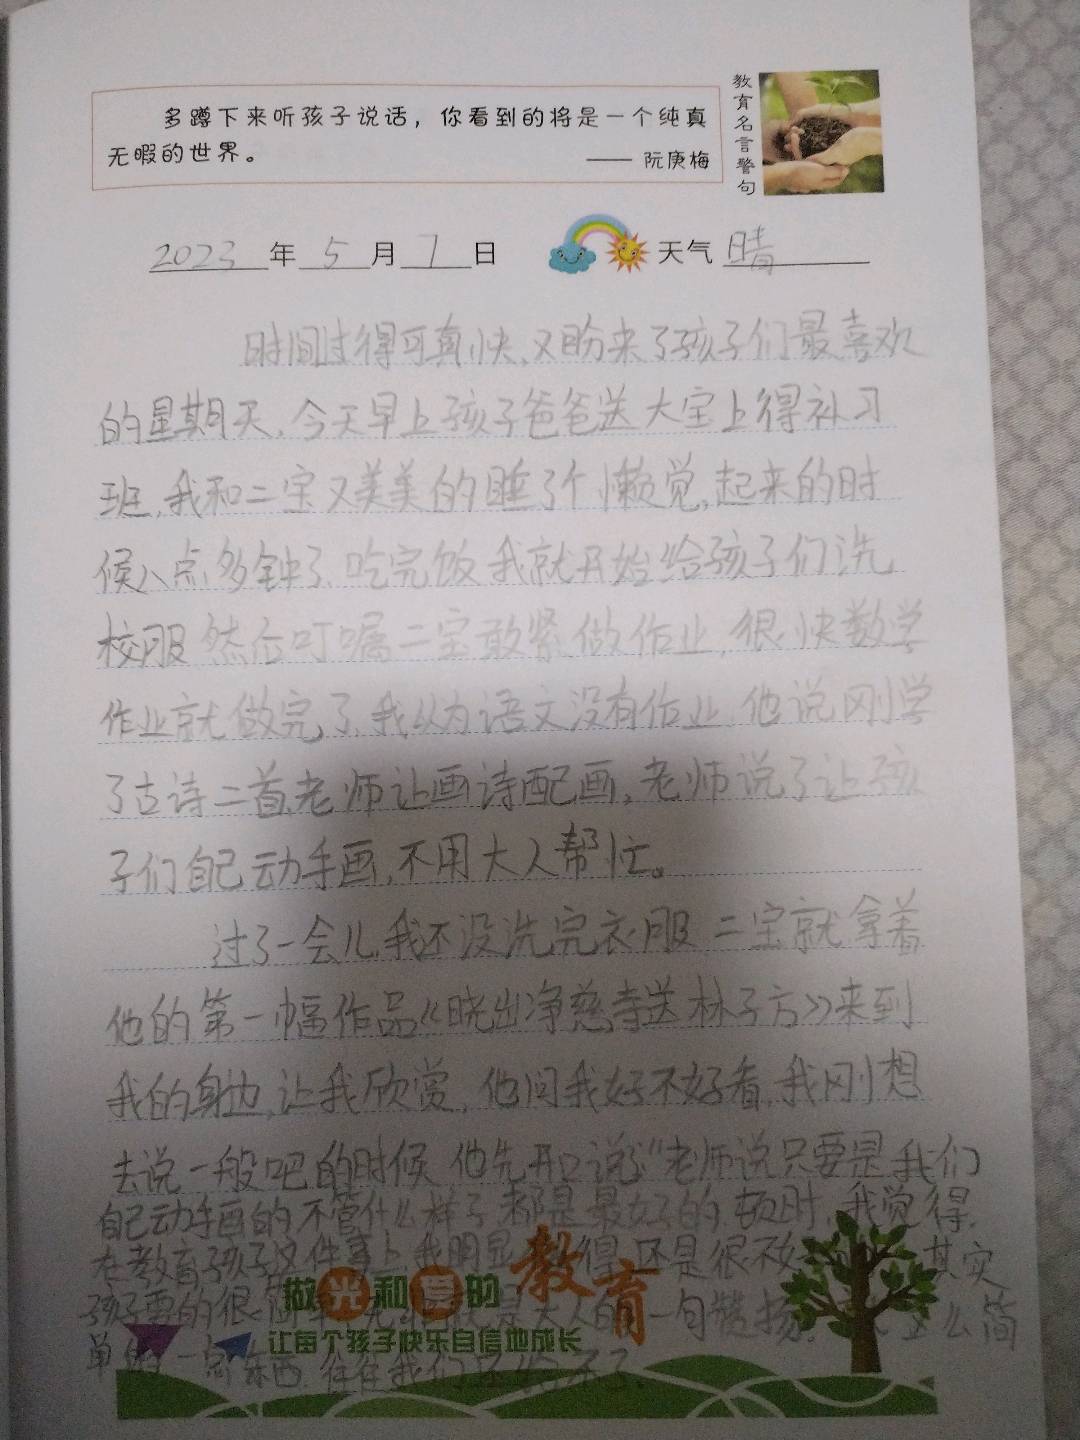 多蹲下来听孩子说话，你看到的将是一个纯真
无暇的世界。
—— 阮庚梅
教育名言警句
2023年5月7日 天气 晴
时间过得可真快,又盼来了孩子们最喜欢
的星期天,今天早上孩子爸爸送大宝上得补习
班,我和二宝又美美的睡了个懒觉,起来的时
候八点多钟了.吃完饭我就开始给孩子们洗
校服 然后叮嘱二宝敢紧做作业,很快数学
作业就做完了,我以为语文没有作业,他说刚学
了古诗二首,老师让画诗配画,老师说了让孩
子们自己动手画,不用大人帮忙。
过了一会儿,我还没洗完衣服 二宝就拿着
他的第一幅作品《晓出净慈寺送林子方》来到
我的身边,让我欣赏,他问我好不好看,我刚想
去说一般吧的时候 他先开口说:"老师说只要是我们
自己动手画的不管什么样子都是最好的,顿时,我觉得,
在教育孩子这件事上我明显 得还是很不 其实
孩子要的很简单 是大人的一句赞扬, 么简
单的一点东西,往往我们还给不了.
做光和爱的教育
让每个孩子快乐自信地成长